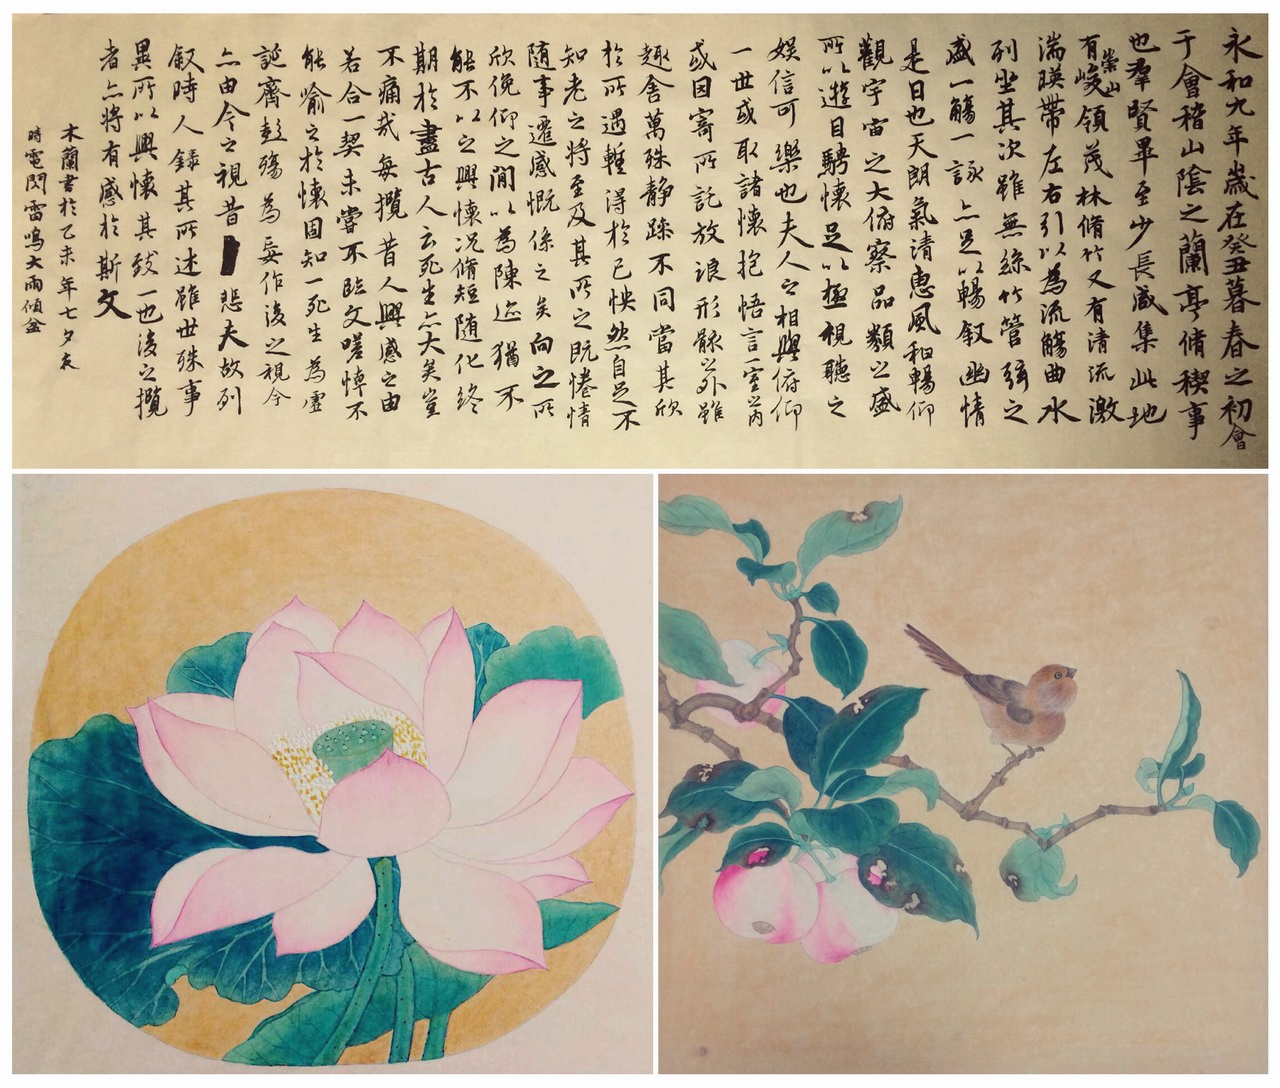 永和九年歲在癸丑暮春之初會
于會稽山陰之蘭亭脩稧事
也羣賢畢至少長咸集此地
有崇山峻領茂林脩竹又有清流激
湍暎帶左右引以為流觴曲水
列坐其次雖無絲竹管弦之
盛一觴一詠亦足以暢叙幽情
是日也天朗氣清惠風和暢仰
觀宇宙之大俯察品類之盛
所以遊目騁懷足以極視聽之
娛信可樂也夫人之相與俯仰
一世或取諸懷抱悟言一室之內
或因寄所託放浪形骸之外雖
趣舍萬殊靜躁不同當其欣
於所遇輊得於己怏然自足不
知老之將至及其所之既惓情
隨事遷感慨係之矣向之所
欣俛仰之間以為陳迹猶不
能不以之興懷況脩短隨化終
期於盡古人云死生亦大矣豈
不痛哉每攬昔人興感之由
若合一契未嘗不臨文嗟悼不
能喻之於懷固知一死生為虛
誕齊彭殤為妄作後之視今
亦由今之視昔悲夫故列
叙時人錄其所述雖世殊事
異所以興懷其致一也後之攬
者亦將有感於斯文
木蘭書於乙未年七夕夜
時電閃雷鳴大雨傾盆